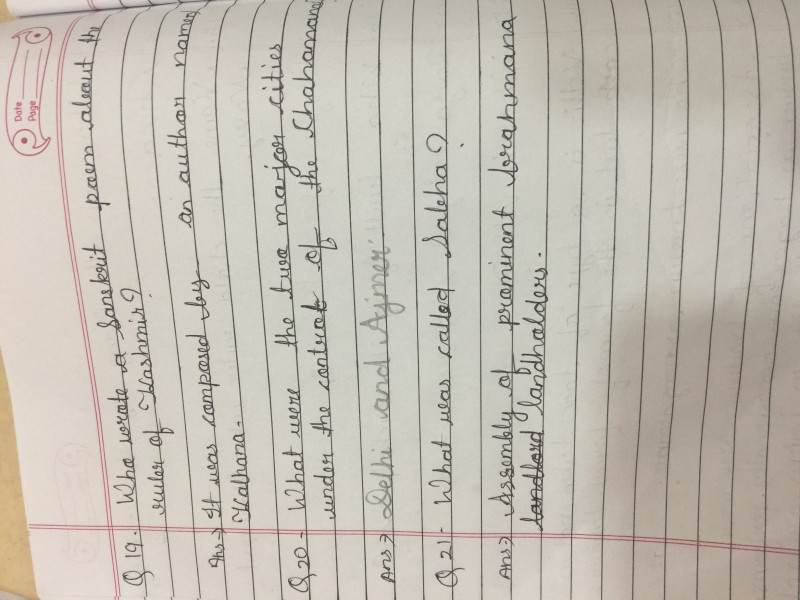 Date
Page
Q 19. Who wrote a Sanskrit poem about the
ruler of Kashmir?
Ans→ It was composed by an author named
Kalhana.
Q 20 - What were the two marjor cities
under the control of the Chahamanas
Ans→ Delhi and Ajmer.
Q 21 - What was called Sabha?
Ans→ Assembly of prominent brahmana
landlord landholders.